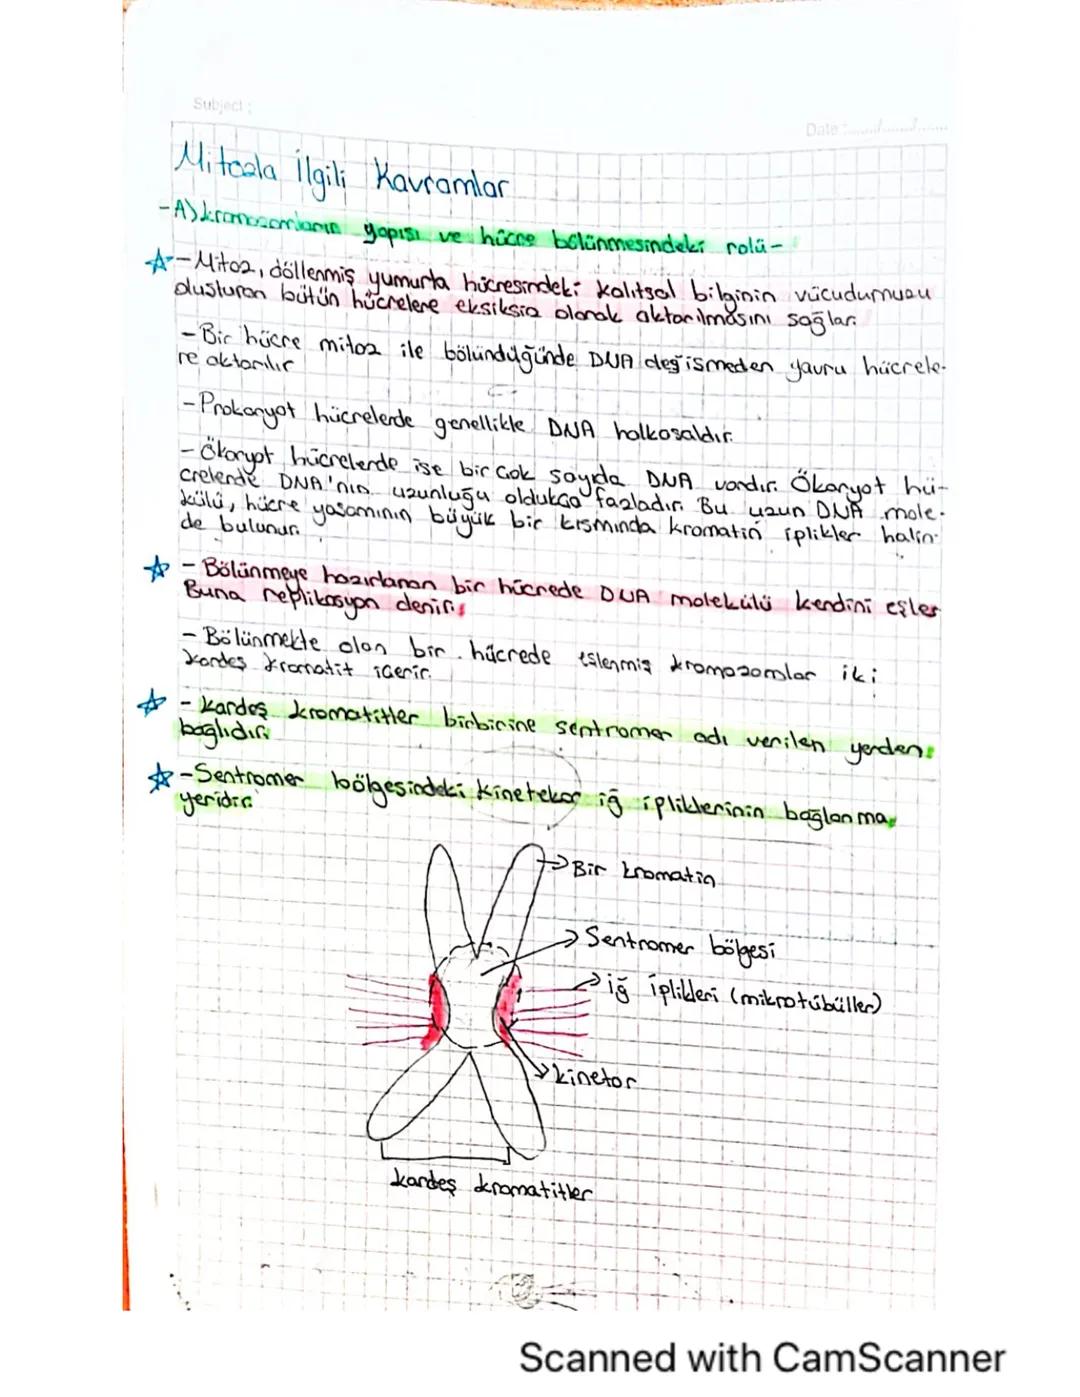 Subject :
Date :
Mitozla İlgili Kavramlar
-A) kromozomların yapısı ve hücre bölünmesindeki rolü-
-Mitoz, döllenmiş yumurta hücresindeki kalıtsal bilginin vücudumuzu
oluşturan bütün hücrelere eksiksiz olarak aktarılmasını sağlar.
-Bir hücre mitoz ile bölündüğünde DNA değişmeden yavru hücrele-
re aktarılır
-Prokaryot hücrelerde genellikle DNA halkasaldır.
-Ökaryot hücrelerde ise bir çok sayıda DNA vardır. Ökaryot hü-
crelerde DNA'nın uzunluğu oldukça fazladır. Bu uzun DNA mole-
külü, hücre yaşamının büyük bir kısmında kromatin iplikler halin-
de bulunur.
-Bölünmeye hazırlanan bir hücrede DNA molekülü kendini eşler
Buna replikasyon denir.
-Bölünmekte olan bir hücrede eşlenmiş kromozomlar iki
kardeş kromatit içerir.
-Kardeş kromatitler birbirine sentromer adı verilen yerden
bağlıdır.
-Sentromer bölgesindeki kinetekor iğ ipliklerinin bağlanma
yeridir.
Bir kromatin
Sentromer bölgesi
iğ iplikleri (mikrotübüller)
kinetor
kardeş kromatitler
Scanned with CamScanner